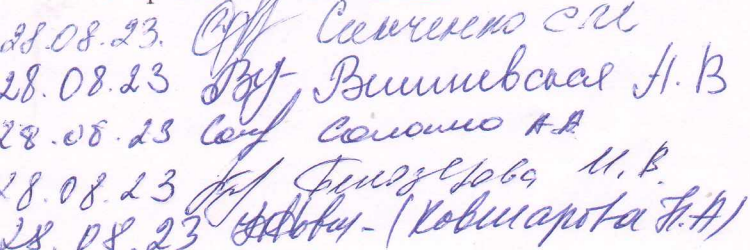 28.08.23. Синченко С.И
28.08.23 Ву- Вишневская Н.В
28.08.23 Сол Соломко А А
28.08.23 Белозерова И.В.
28.08.23 (Ковшарова Н.А)